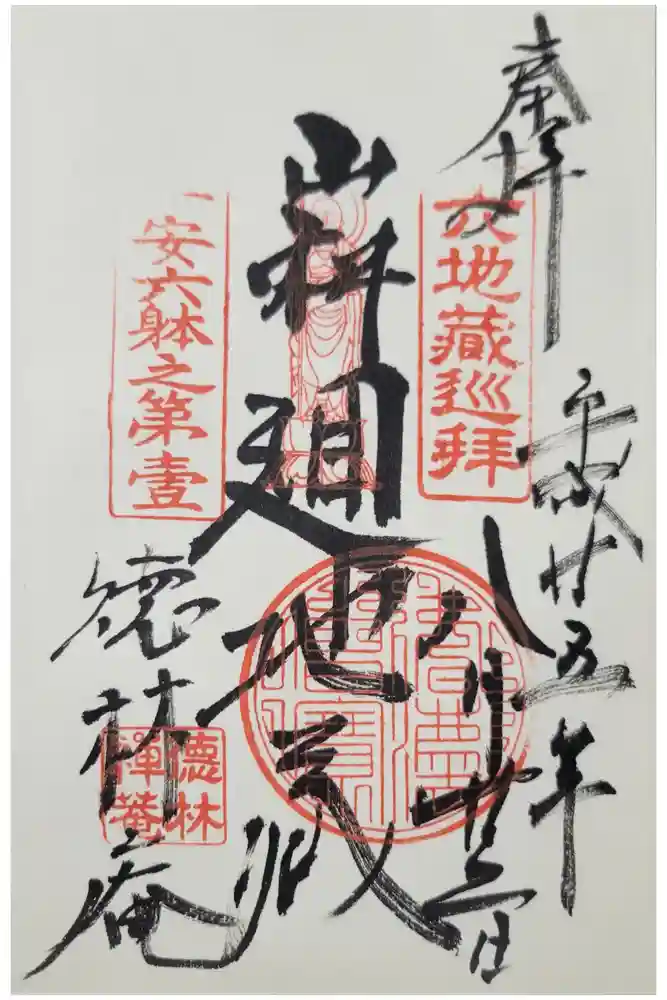 奉拝
平成廿五年
八月廿三日
六地藏巡拜
山科廻地蔵
一安六躰之第壹
徳林庵
德林
禪菴